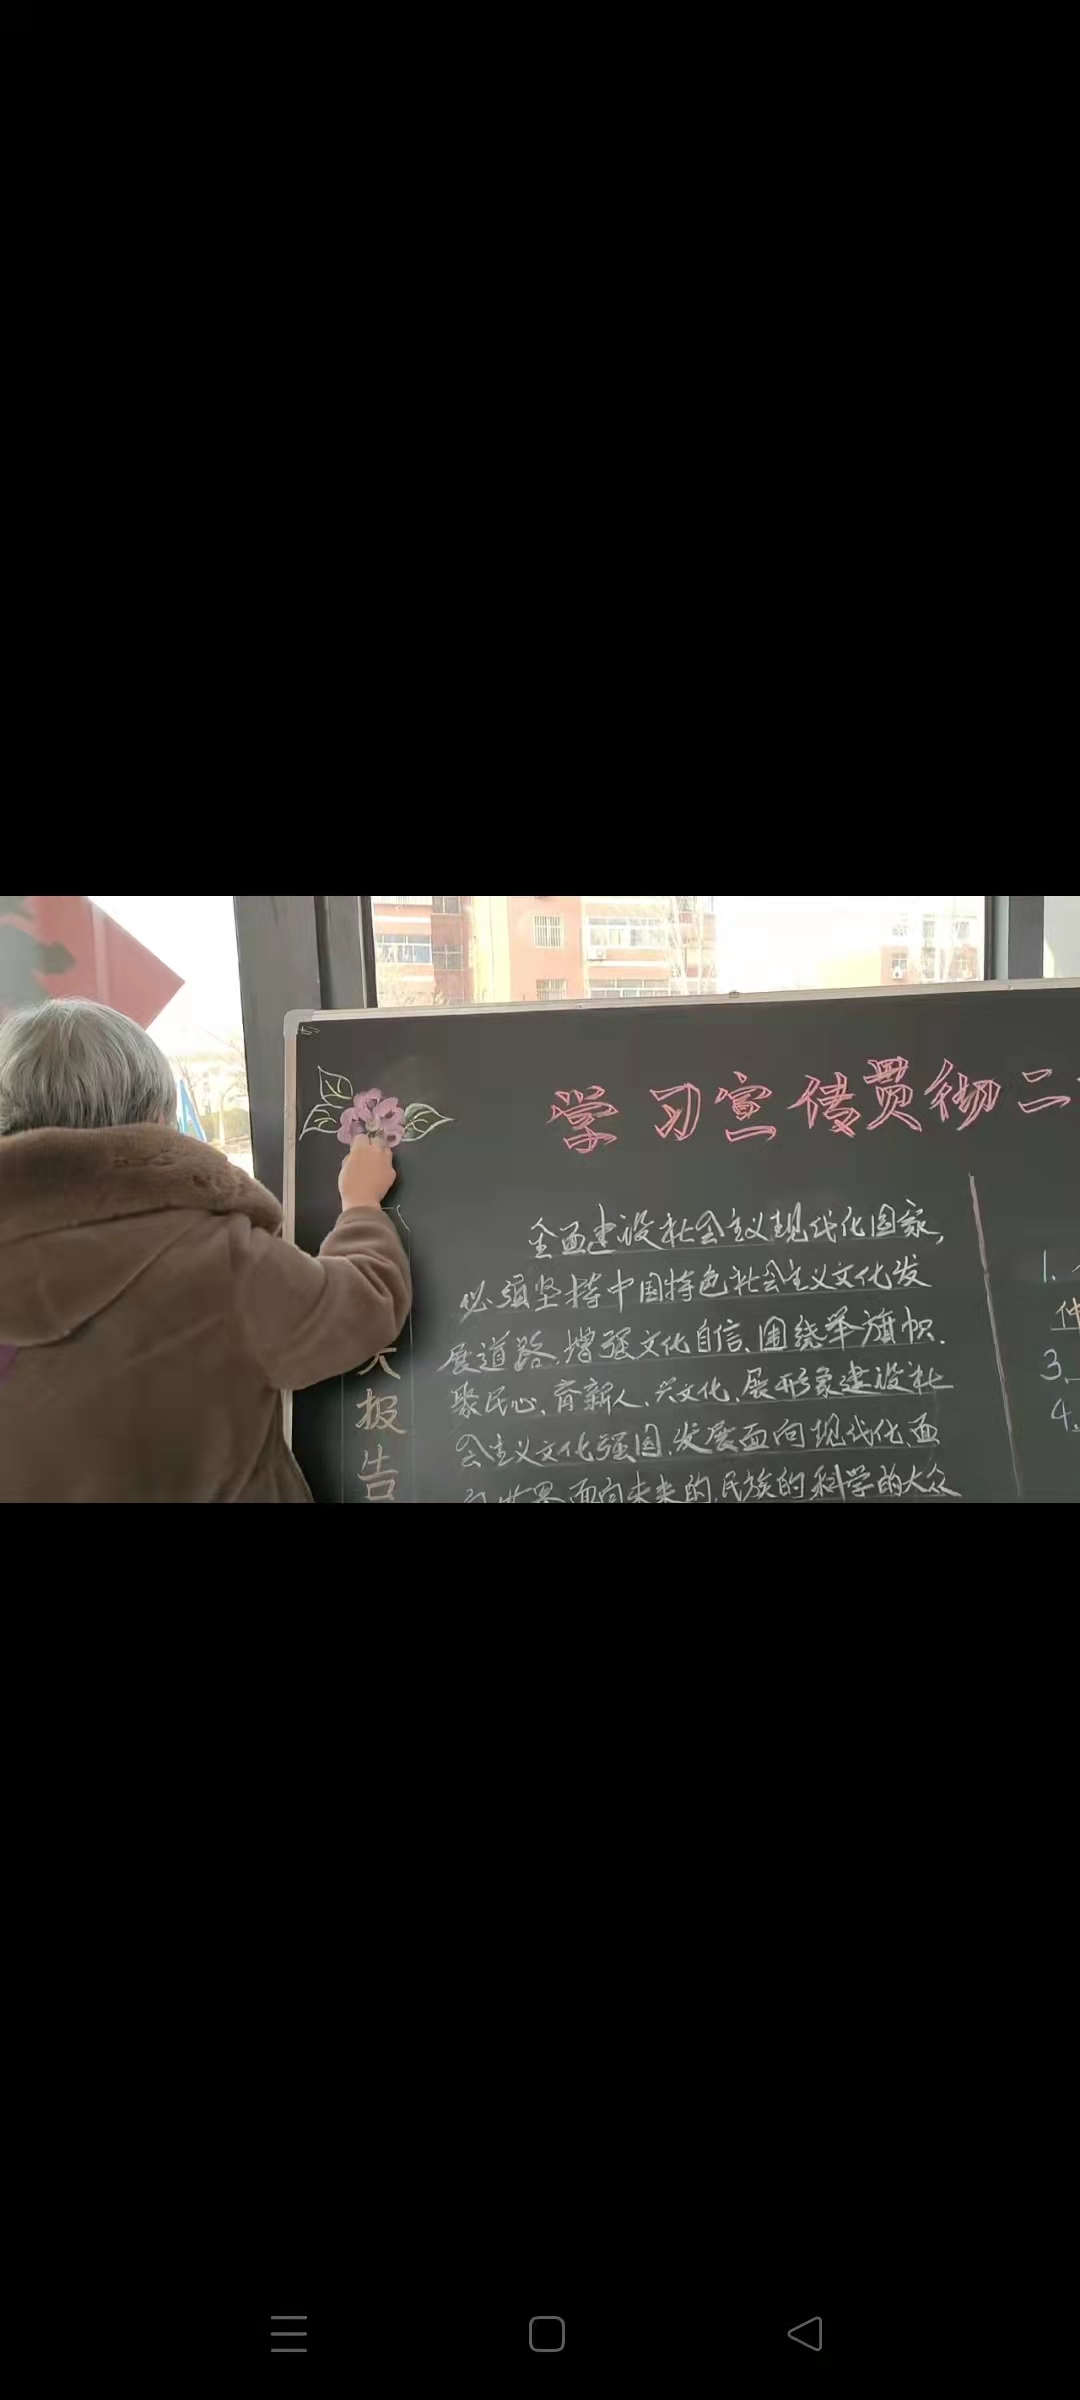 学习宣传贯彻二
全面建设社会主义现代化国家,
必须坚持中国特色社会主义文化发
展道路,增强文化自信、围绕举旗帜、
聚民心、育新人、兴文化、展形象建设社
会主义文化强国,发展面向现代化、面
世界面向未来的,民族的科学的大众
报
告
1.
仲
3.
4.